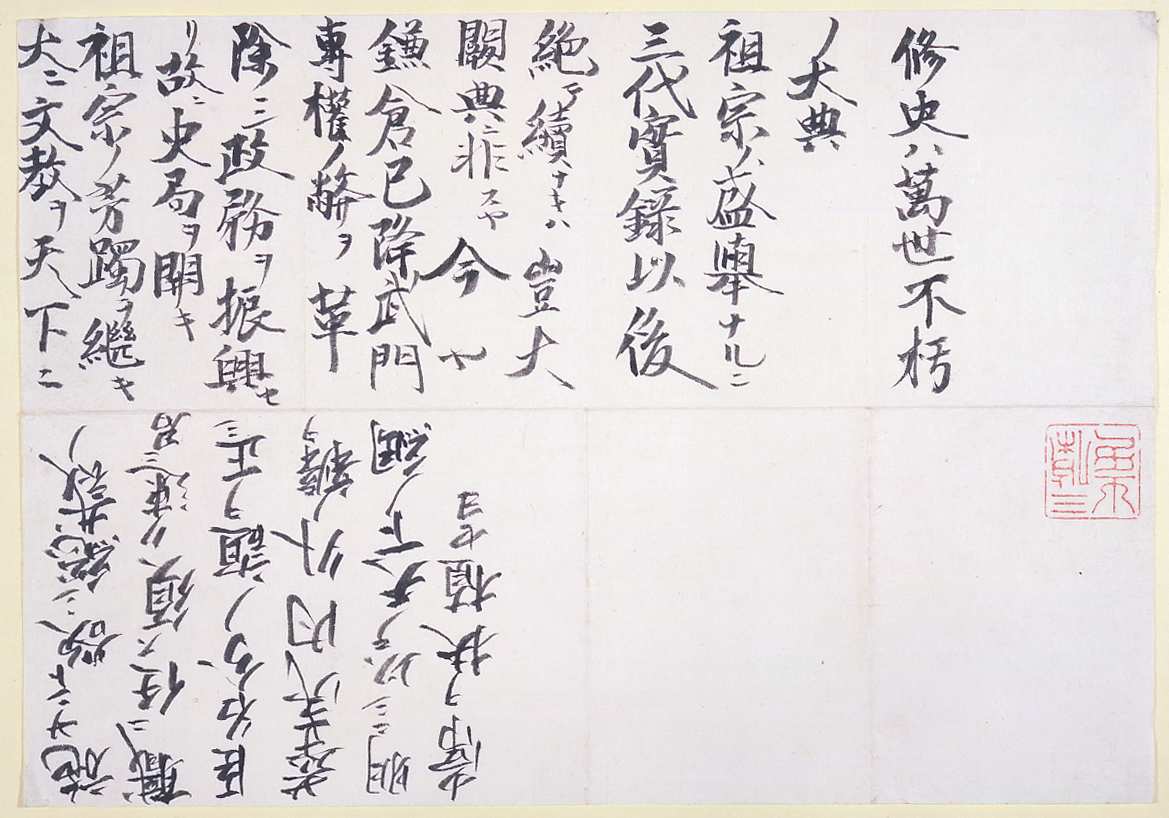 修史ハ萬世不朽
ノ大典
祖宗ノ盛擧ナルニ
三代實録以後
絶テ續ナキハ豈大
闕典ニ非スヤ今ヤ
鎌倉已降武門
專權ノ弊ヲ革
除シ政務ヲ振興セ
リ故ニ史局ヲ開キ
祖宗ノ芳躅ヲ繼キ
大ニ文教ヲ天下ニ
施サント欲シ總裁ノ
職ニ任ス須ク速ニ君
臣名分ノ誼ヲ正シ
華夷内外ノ辨ヲ
明ニシ以テ天下ノ綱
常ヲ扶植セヨ